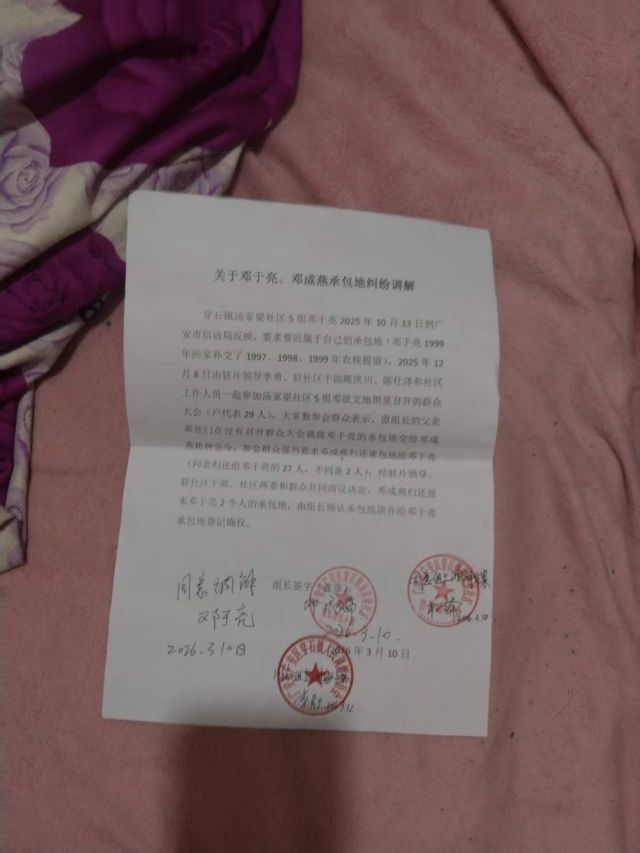 关于邓于亮、邓成燕承包地纠纷调解
穿石镇汤家梁社区5组邓于亮2025年10月13日到广
安市信访局反映，要求要回属于自己的承包地（邓于亮1999
年回家补交了1997、1998、1999年农税提留）。2025年12
月8日由驻片领导李勇、驻社区干部熊洪川、陈仕泽和社区
工作人员一起参加汤家梁社区5组邓歆文地坝里召开的群众
大会（户代表29人），大多数参会群众表示，原组长的父亲
在没有召开群众大会就将邓于亮的承包地交给邓成
燕耕种至今，参会群众强烈要求邓成燕归还承包地给邓于亮
（同意归还给邓于亮的27人，不同意2人）；经驻片领导、
驻社区干部、社区两委和群众共同商议决定，邓成燕归还原
来邓于亮2个人的承包地，由组长确认承包地块并给邓于亮
承包地登记确权。
同意调解
邓于亮
2026.3月10日
组长签字
2026.3.10.
2026年3月10日